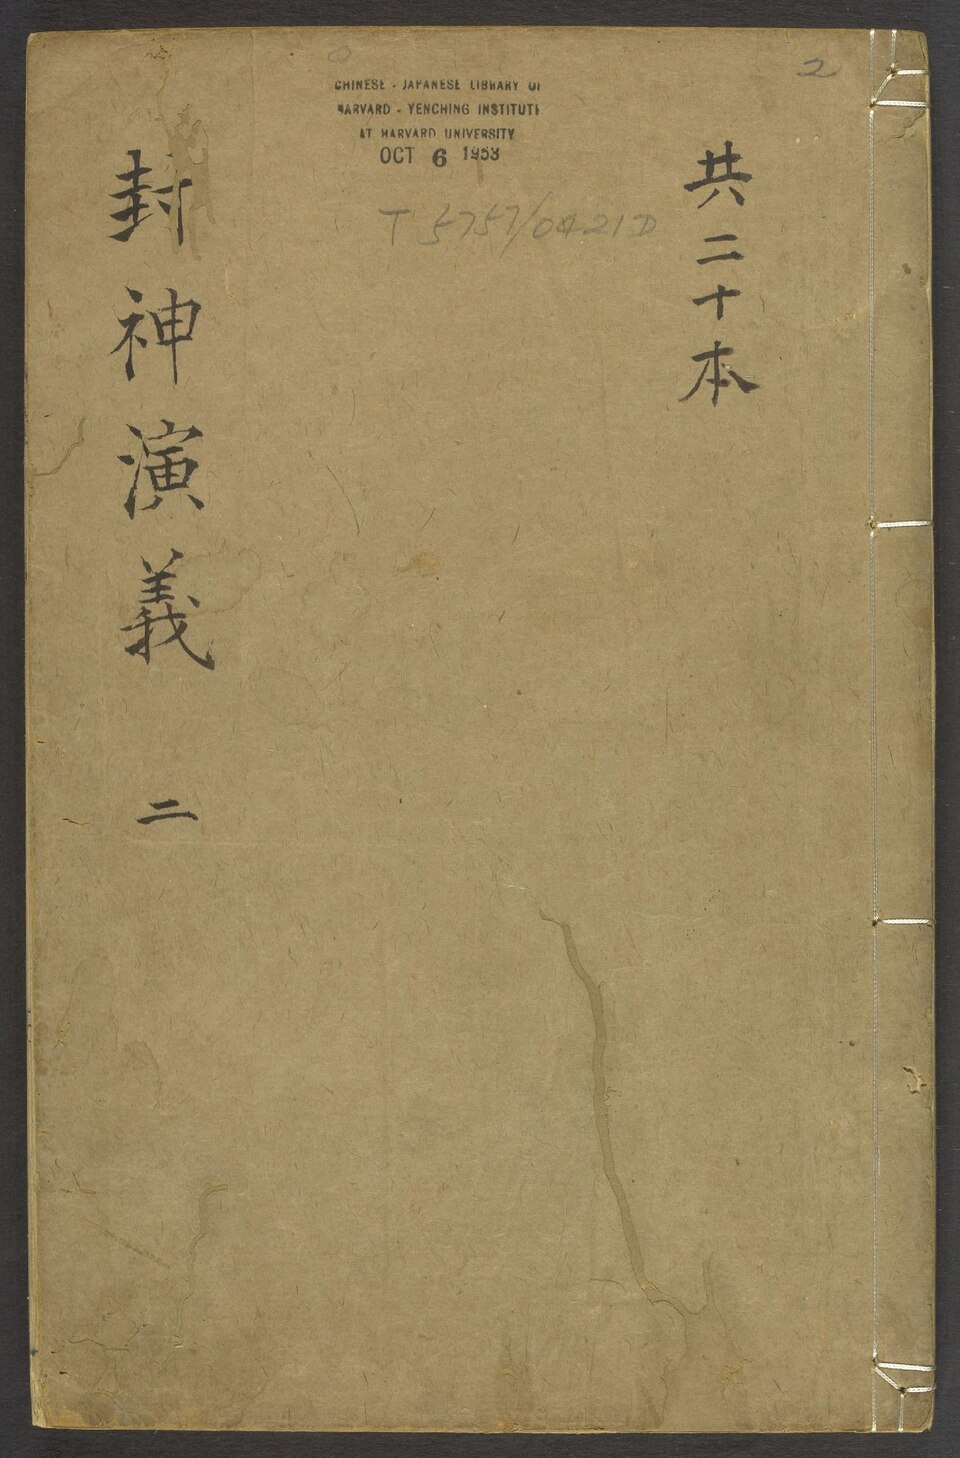 共二十本
2
CHINESE - JAPANESE LIBRARY OF
HARVARD - YENCHING INSTITUTE
AT HARVARD UNIVERSITY
OCT 6 1953
T 5757/0421D
封神演義 二